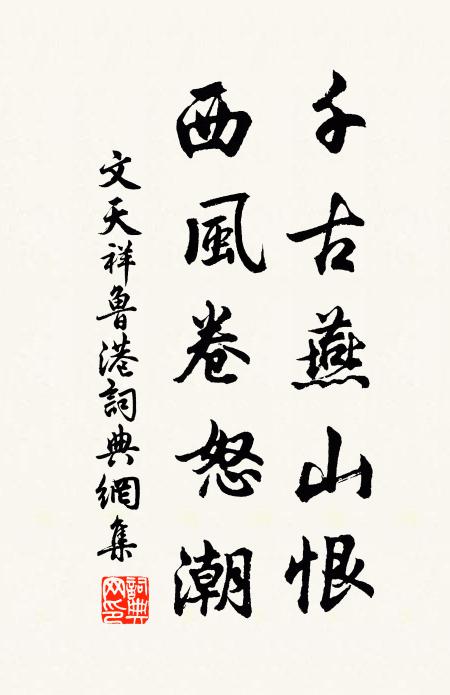 千古燕山恨
西風卷怒潮
文天祥魯港詞典網集
詞典网印